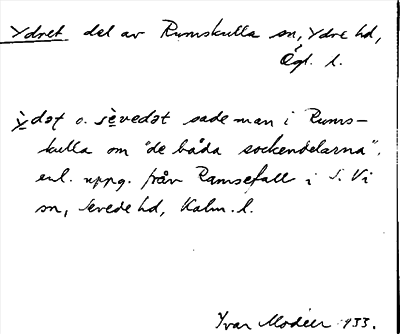 Ydret del av Rumskulla sn, Ydre hd,
Ögl. l.
ỳdət o. sèvedət sade man i Rums-
kulla om "de båda sockendelarna".
enl. uppg. från Ramsefall i S. Vi
sn, Sevede hd, Kalm. l.
Yvar Modéer 1933.